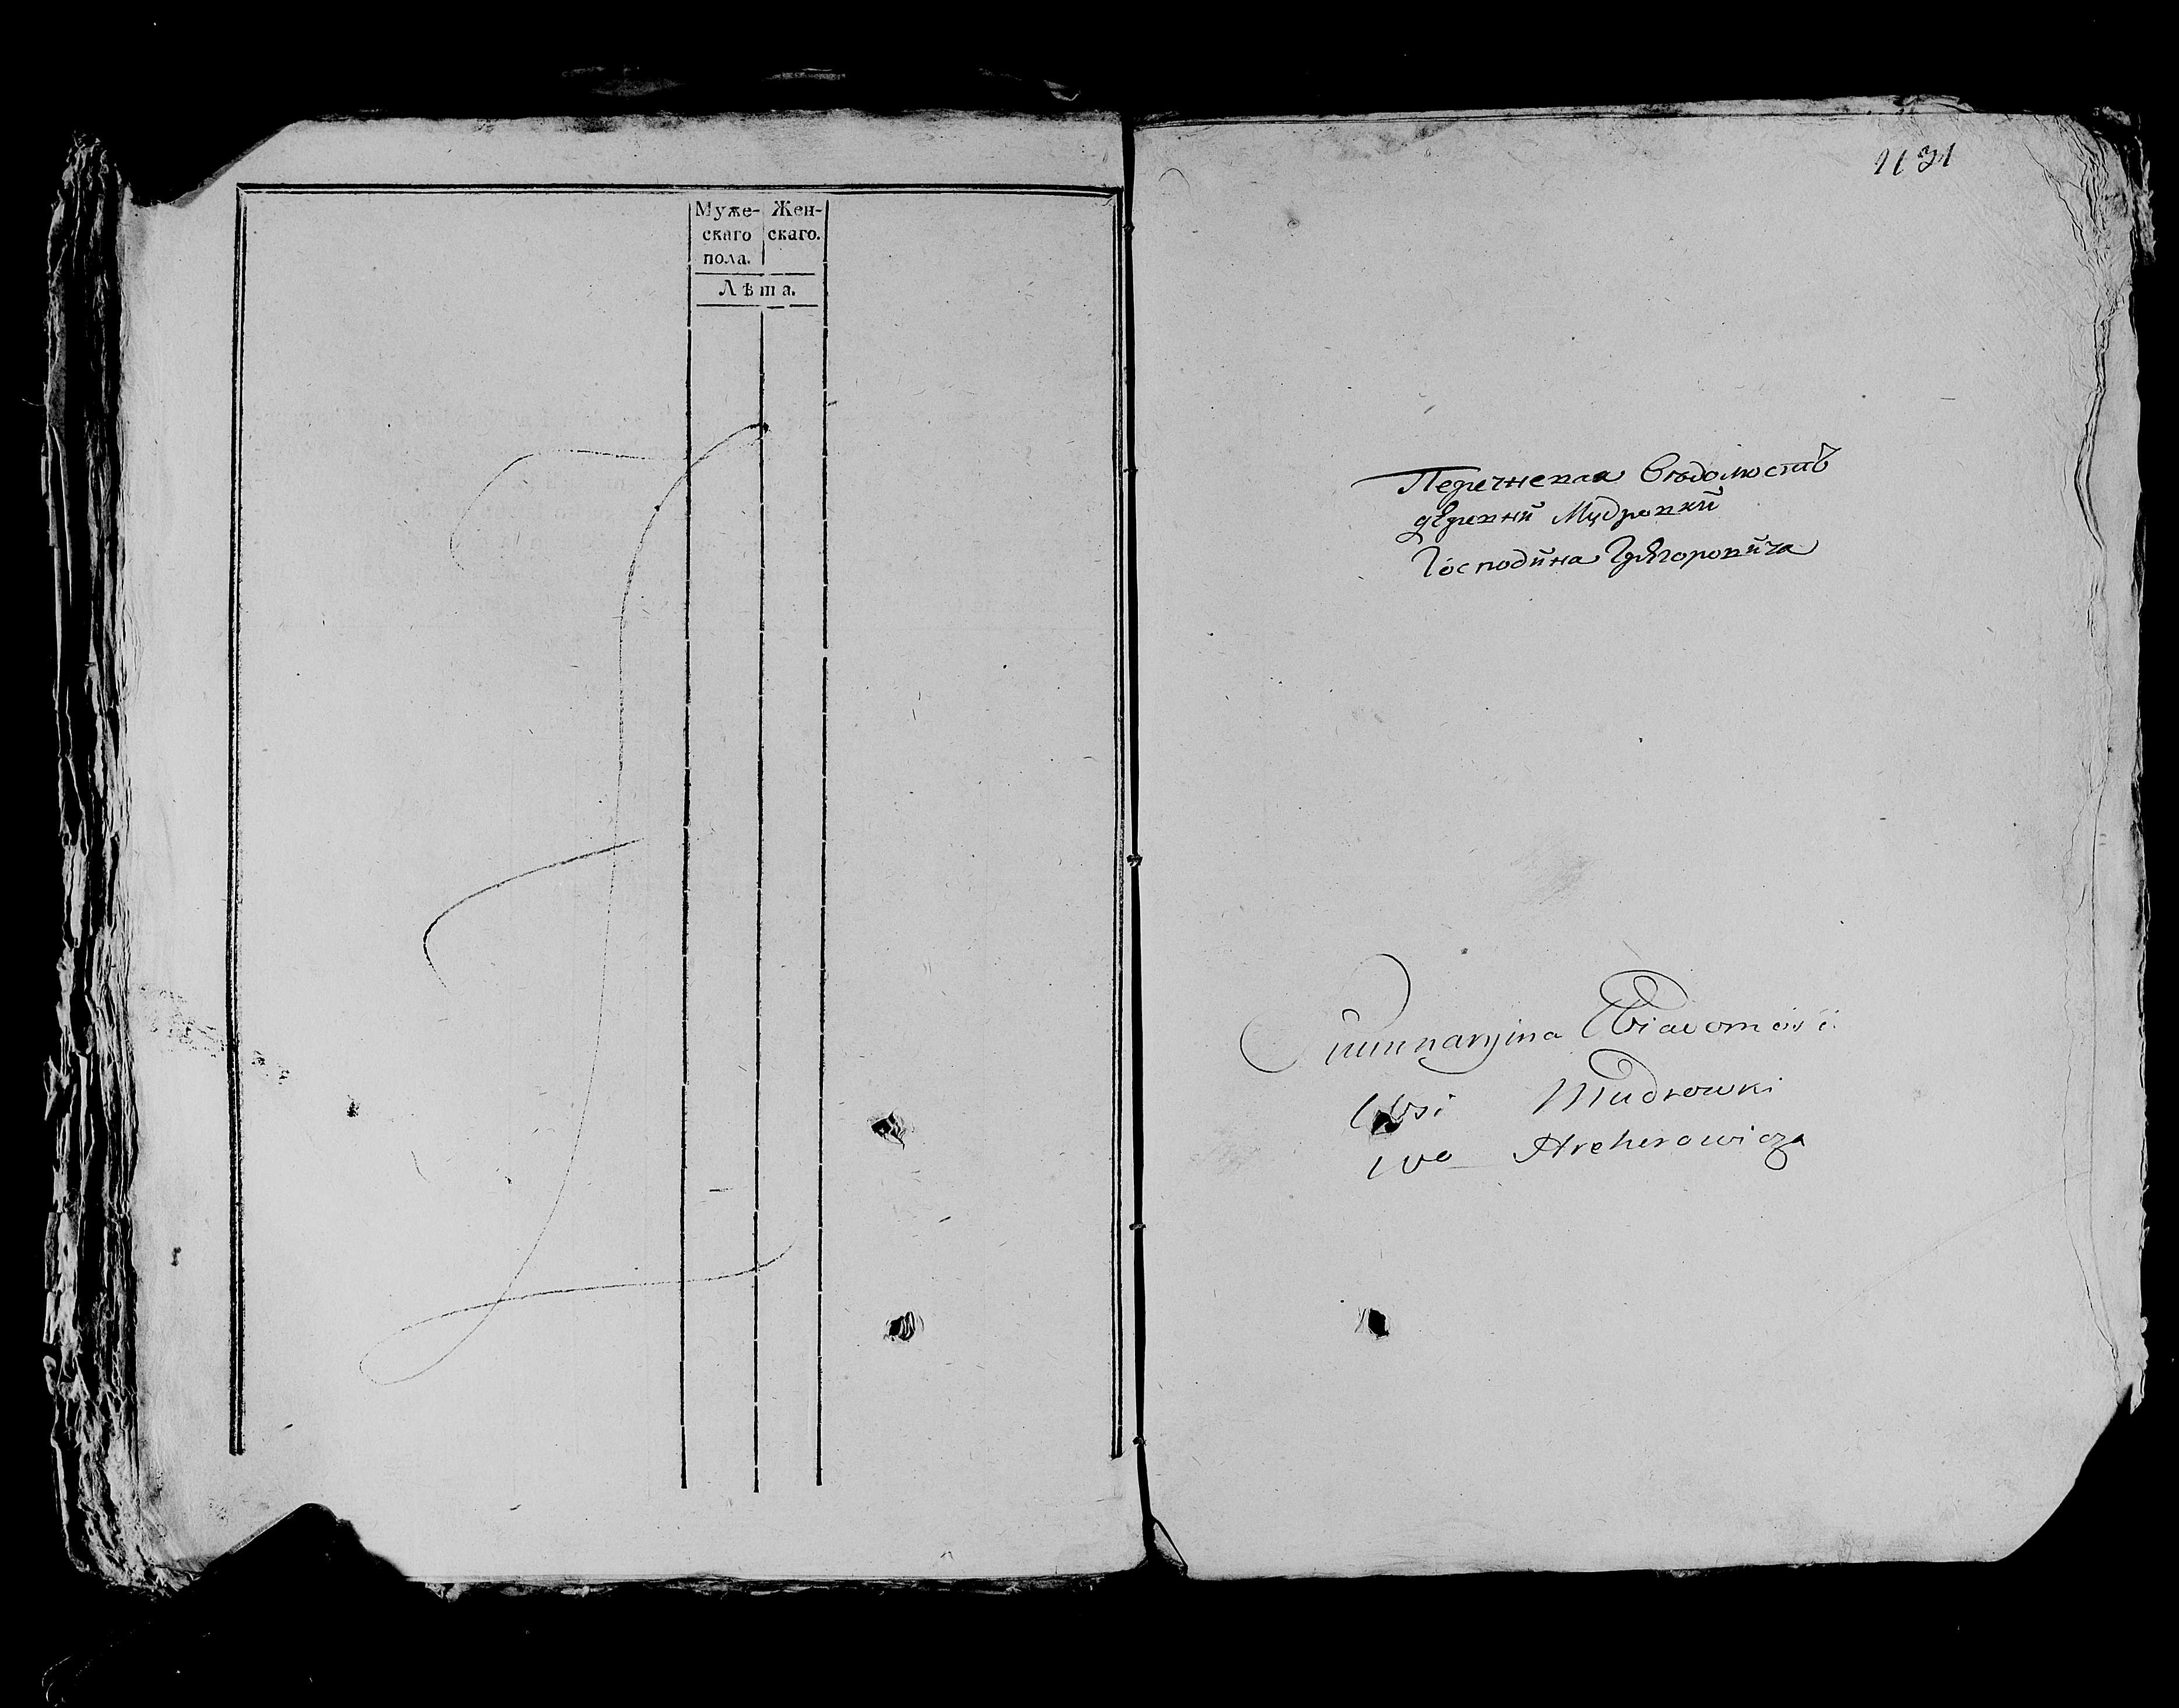 Муже-
скаго
пола.
Жен-
скаго.
Лѣта.
1131
Перечневая Вѣдомость
деревни Мудровки
Господина Грегоровича
Summaryjna Wiadomość
Wsi Mudrowki
Wo Hrehorowicza